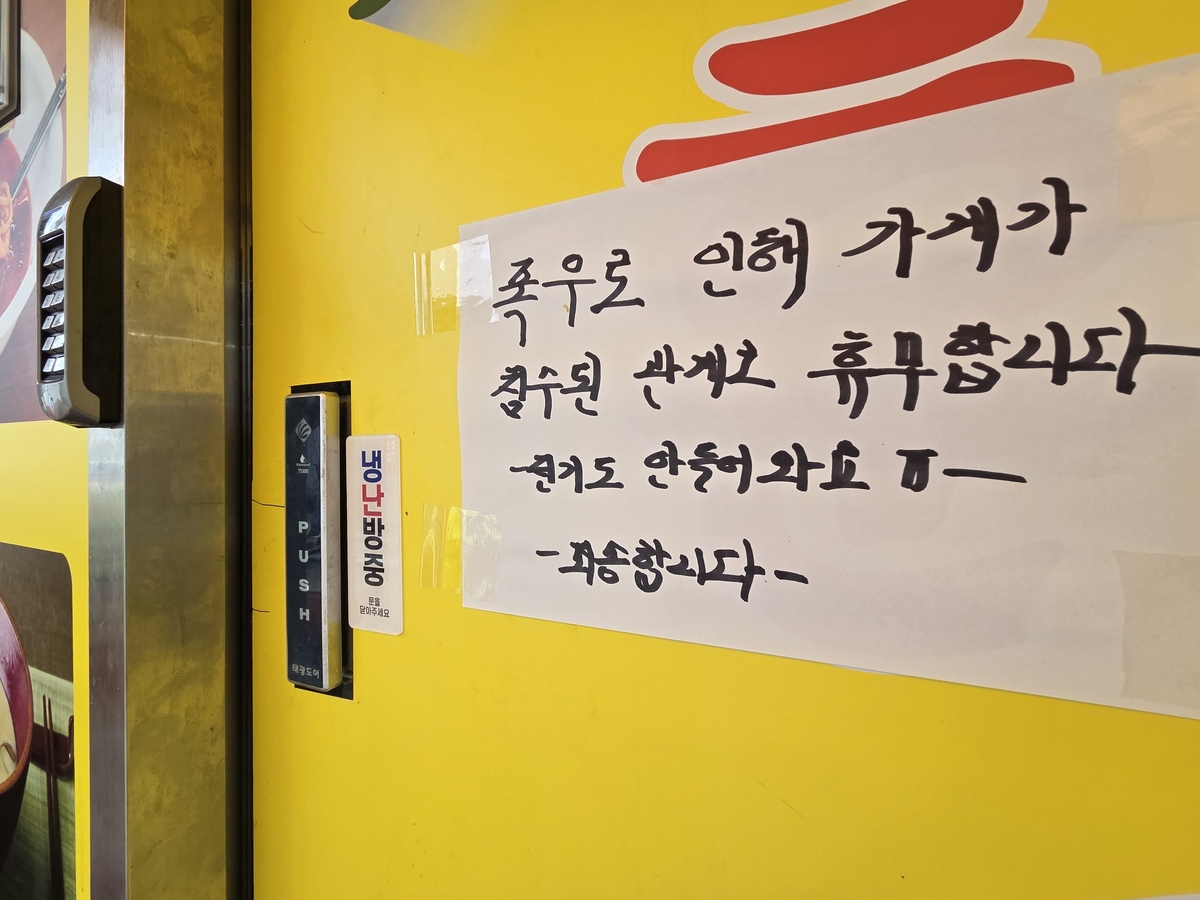 폭우로 인해 가게가
침수된 관계로 휴무합니다
전기도 안들어 와요 ㅠ
-죄송합니다-
PUSH
태광도어
냉난방중
문을
닫아주세요